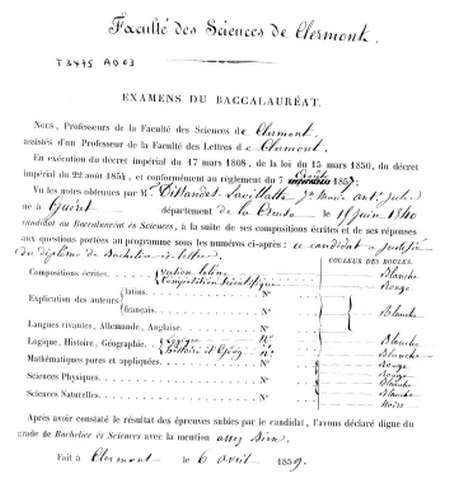 Faculté des Sciences de Clermont.
T3475 AD03
EXAMENS DU BACCALAURÉAT.
Nous, Professeurs de la Faculté des Sciences de Clermont,
assistés d'un Professeur de la Faculté des Lettres de Clermont.
En exécution du décret impérial du 17 mars 1808, de la loi du 15 mars 1850, du décret
impérial du 22 août 1854, et conformément au règlement du 7 août 1857.
Vu les notes obtenues par M. Disandes Lavillatte Jn Marie Ant. Jules
né à Guéret département de la Creuse le 15 juin 1840
candidat au Baccalauréat ès Sciences, à la suite de ses compositions écrites et de ses réponses
aux questions portées au programme sous les numéros ci-après: ce candidat a justifié
du diplôme de Bachelier ès-lettres.
COULEUR DES BOULES.
Compositions écrites. version latine Blanche
Composition Scientifique Rouge
Explication des auteurs latins. N°
français. N° Blanche
Langues vivantes, Allemande, Anglaise. N°
Logique, Histoire, Géographie. Logique N° Blanche
histoire et Géog. N° Blanche
Mathématiques pures et appliquées. N° Rouge
Rouge
Sciences Physiques. N° Blanche
Sciences Naturelles. N° Blanche
Noire
Après avoir constaté le résultat des épreuves subies par le candidat, l'avons déclaré digne du
grade de Bachelier ès Sciences avec la mention assez Bien.
Fait à Clermont le 6 avril 1859.